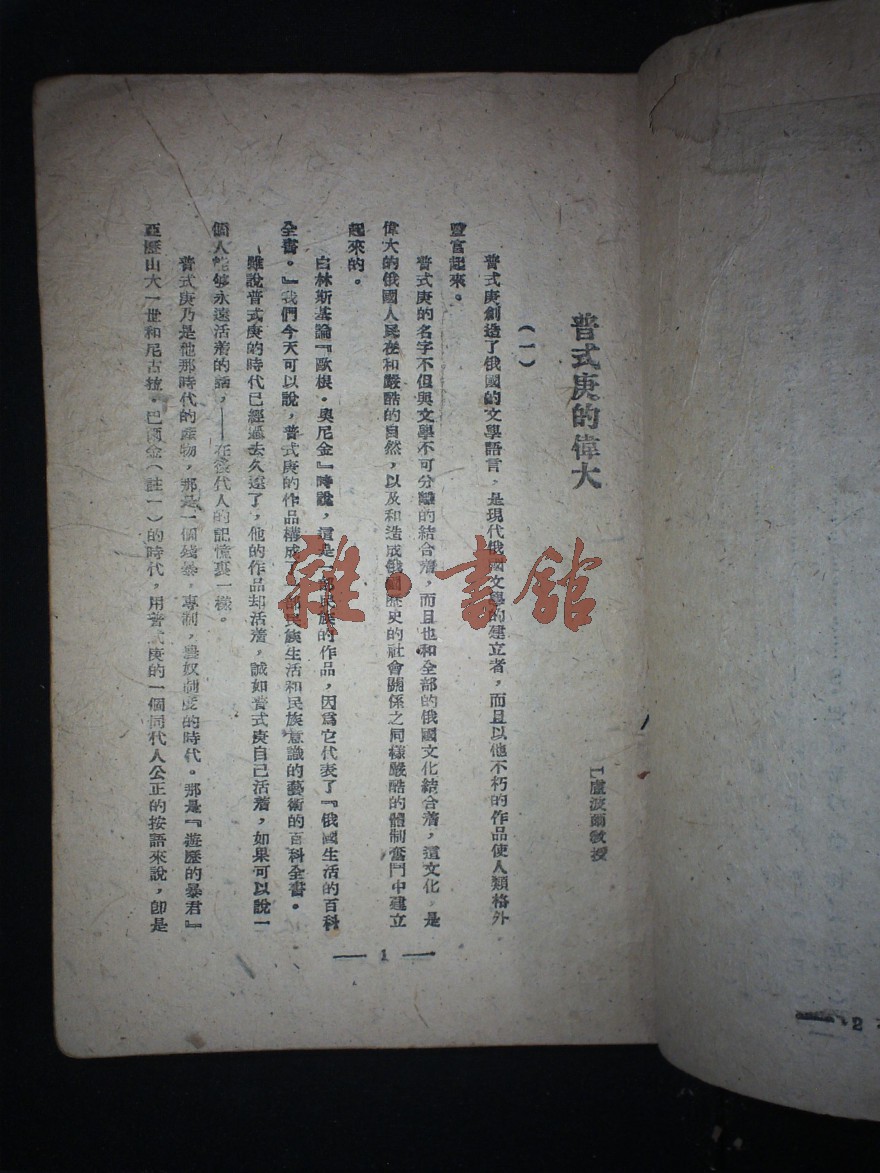 普式庚的偉大
I.盧波爾敎授
（一）
普式庚創造了俄國的文學語言，是現代俄國文學的建立者，而且以他不朽的作品使人類格外
豐富起來。
普式庚的名字不但與文學不可分離的結合着，而且也和全部的俄國文化結合着，這文化，是
偉大的俄國人民在和嚴酷的自然，以及和造成俄國歷史的社會關係之同樣嚴酷的體制奮鬥中建立
起來的。
白林斯基論『歐根·奧尼金』時說，這是一部民族的作品，因爲它代表了『俄國生活的百科
全書。』我們今天可以說，普式庚的作品構成了一部民族生活和民族意識的藝術的百科全書。
雖說普式庚的時代已經過去久遠了，他的作品却活着，誠如普式庚自己活着，如果可以說一
個人能够永遠活着的話，——在後代人的記憶裏一樣。
普式庚乃是他那時代的產物，那是一個殘暴，專制，農奴制度的時代。那是『遊歷的暴君』
亞歷山大一世和尼古拉·巴爾金（註一）的時代，用普式庚的一個同代人公正的按語來說，卽是
— 1 —
2
雜·書館